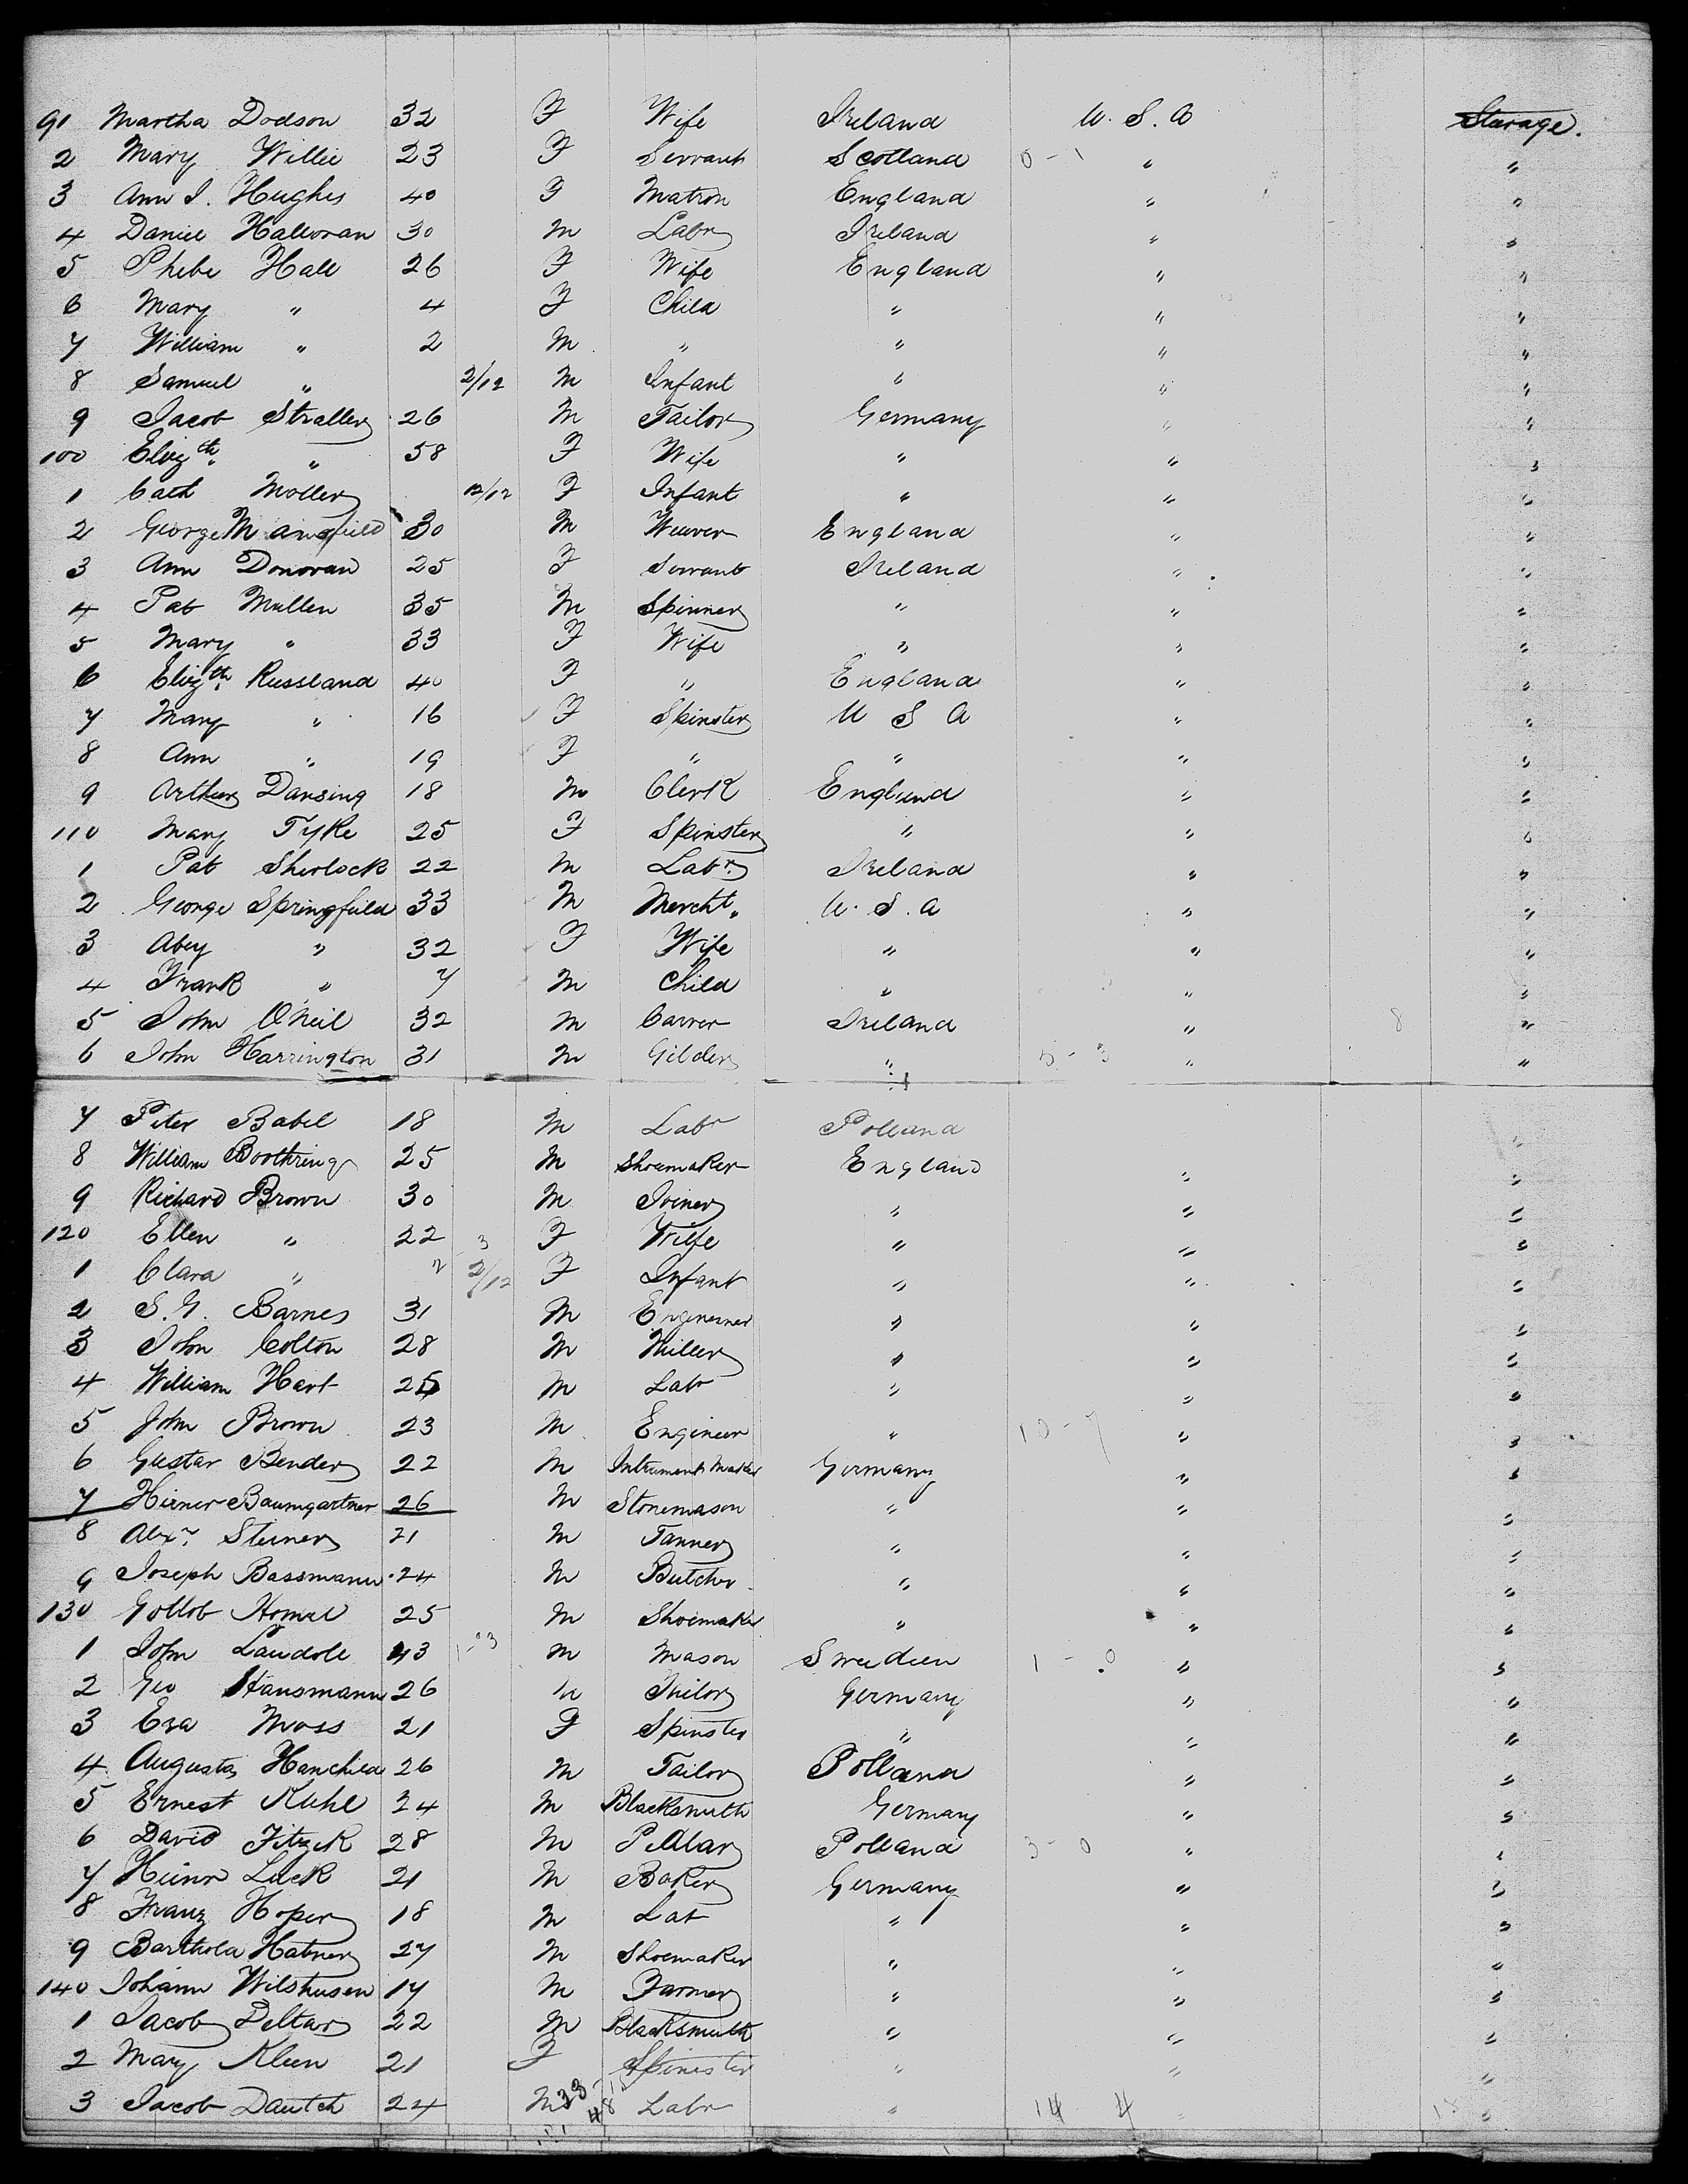 91 Martha Dodson 32 F Wife Ireland U. S. A Stearage.
2 Mary Willie 23 F Servant Scotland 0 - 1 " "
3 Ann I. Hughes 40 F Matron England " "
4 Daniel Halloran 30 M Labr Ireland " "
5 Phebe Hall 26 F Wife England " "
6 Mary " 4 F Child " " "
7 William " 2 M " " " "
8 Samuel " 2/12 M Infant " " "
9 Jacob Straller 26 M Tailor Germany " "
100 Elizth " 58 F Wife " " "
1 Cath Moller 10/12 F Infant " " "
2 George Mansfield 30 M Weaver England " "
3 Ann Donovan 25 F Servant Ireland " "
4 Pat Mullen 35 M Spinner " " "
5 Mary " 33 F Wife " " "
6 Elizth Russland 40 F " England " "
7 Mary " 16 F Spinster U S A " "
8 Ann " 19 F " " " "
9 Arthur Dansing 18 M Clerk England " "
110 Mary Tyke 25 F Spinster " " "
1 Pat Sherlock 22 M Labr Ireland " "
2 George Springfield 33 M Mercht U. S. A " "
3 Abey " 32 F Wife " " "
4 Frank " 7 M Child " " "
5 John O'Neil 32 M Carver Ireland " 8 "
6 John Harrington 31 M Gilder " 5 - 3 " "
7 Peter Babel 18 M Labr Polland "
8 William Boothring 25 M Shoemaker England " "
9 Richard Brown 30 M Joiner " " "
120 Ellen " 22 3 F Wife " " "
1 Clara " 2/12 F Infant " " "
2 S. G. Barnes 31 M Engineer " " "
3 John Colton 28 M Miller " " "
4 William Hart 25 M Labr " " "
5 John Brown 23 M Engineer " 10 - 7 " "
6 Gustav Bender 22 M Intrument Maker Germany " "
7 Hiener Baumgartner 26 M Stonemason " " "
8 Alexr Steiner 21 M Tanner " " "
9 Joseph Bassmann 24 M Butcher " " "
130 Gollob Homel 25 M Shoemaker " " "
1 John Landole 43 M Mason Sweeden 1 - 0 " "
2 Geo Hansmann 26 M Tailor Germany " "
3 Eva Moss 21 F Spinster " " "
4 Augusta Hanchild 26 M Tailor Polland " "
5 Ernest Kuhl 24 M Blacksmith Germany " "
6 David Fitzek 28 M Pedlar Polland 3 - 0 " "
7 Heinr Lick 21 M Baker Germany " "
8 Franz Hoper 18 M Lab " " "
9 Barthola Habner 27 M Shoemaker " " "
140 Johann Wilshusen 17 M Farmer " " "
1 Jacob Deltar 22 M Blacksmith " " "
2 Mary Kleen 21 F Spinester " " "
3 Jacob Dautch 24 M 33 48 Labr " 14 4 " 18 "